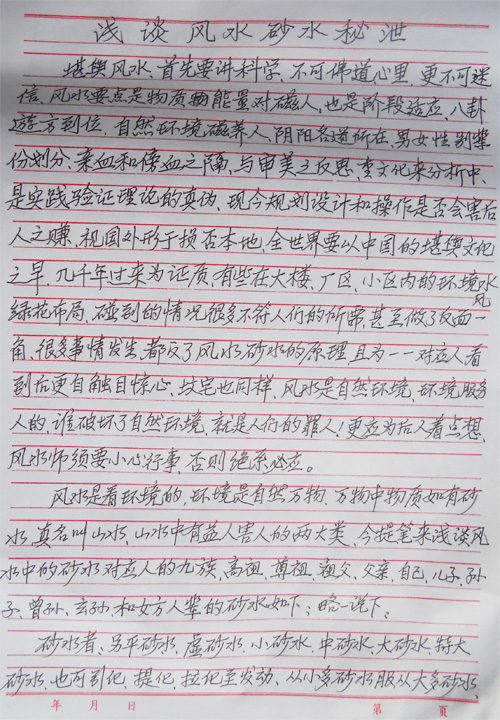 浅谈风水砂水秘泄
堪舆风水，首先要讲科学，不可佛道心里，更不可迷
信，风水要点是物质能量对磁人，也是阶段适应，八卦
遊方到位，自然环境磁养人，阴阳各道所在，男女性别辈
份划分，亲血和傍血之隔，与审美之反思，查文化来分析中，
是实践验证理论的真伪，现今规划设计和操作是否会害后
人之赚，祖国外形于损否本地，全世界要以中国的堪舆文化
之早，几千年过来为证质，有些在大楼、厂区、小区内的环境水风
绿花布局，碰到的情况很多不符人们的所需，甚至做了反面一
角，很多事情发生，都反了风水砂水的原理，且为一一对应人看
到后更自触目惊心，坟宅也同样，风水是自然环境，环境服务
人的，谁破坏了自然环境，就是人们的罪人！更应为后人着点想，
风水师须要小心行事，否则绝系必应。
风水是看环境的，环境是自然万物，万物中物质如有砂
水，真名叫山水，山水中有益人害人的两大类，今提笔来浅谈风
水中的砂水对应人的九族，高祖，尊祖，父，父亲，自己，儿子，孙
子，曾孙，玄孙，和女方人辈的砂水如下；略一说下：
砂水者，另平砂水，虚砂水，小砂水，中砂水，大砂水，特大
砂水，也可引化，提化，拉化至发动，从小多砂水服从大多砂水，
年 月 日 第 页